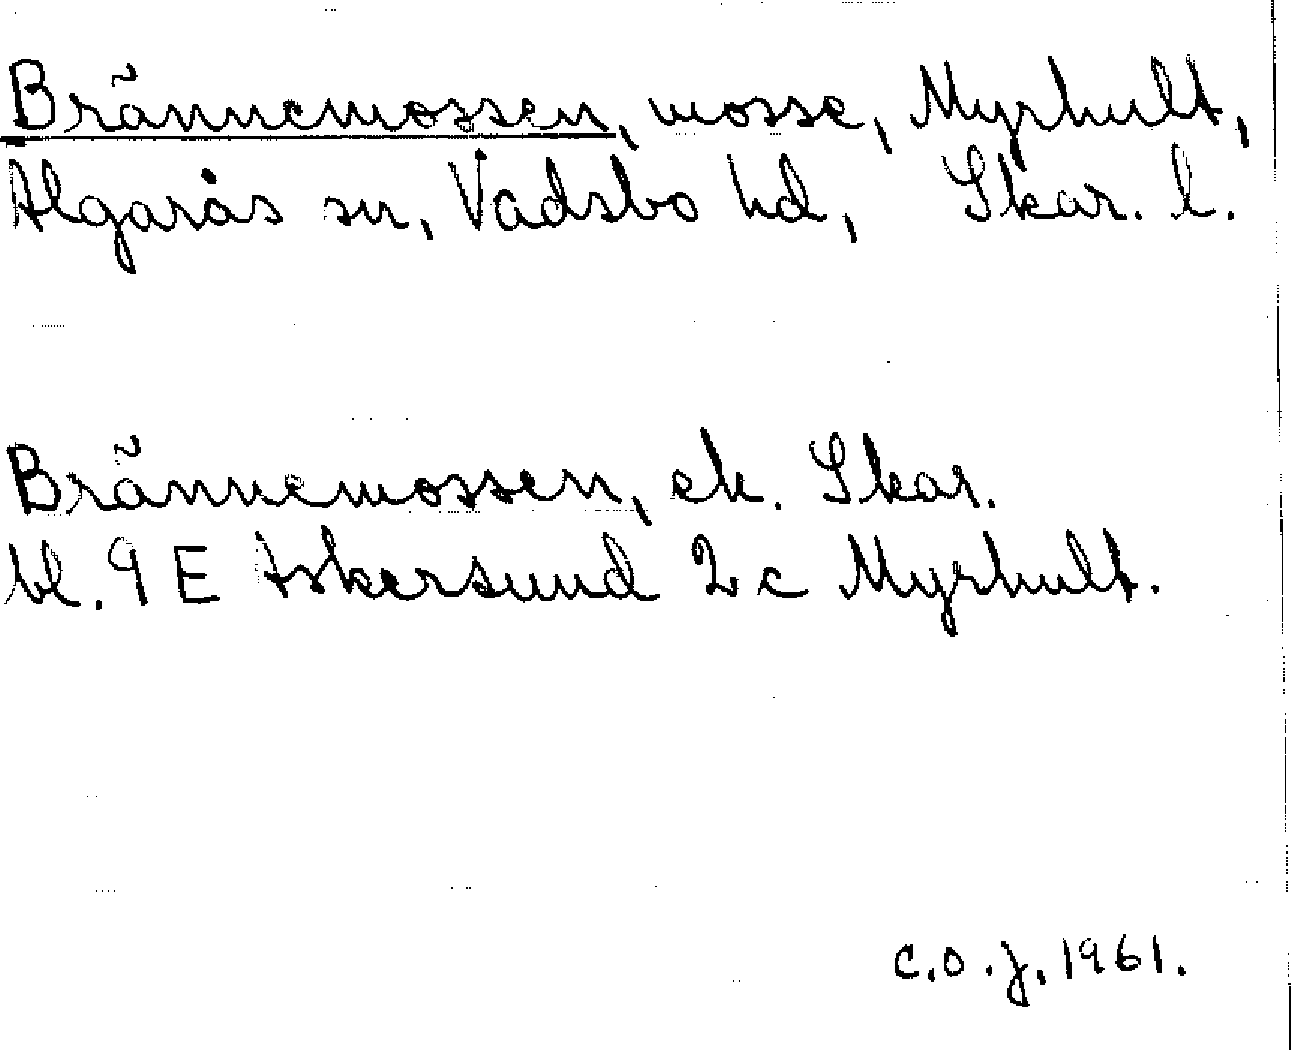 Brännemossen, mosse, Myrhult,
Algarås sn, Vadsbo hd, Skar. l.
Brännemossen, ek. Skar.
bl. 9 E Askersund 2 c Myrhult.
C.O.J. 1961.